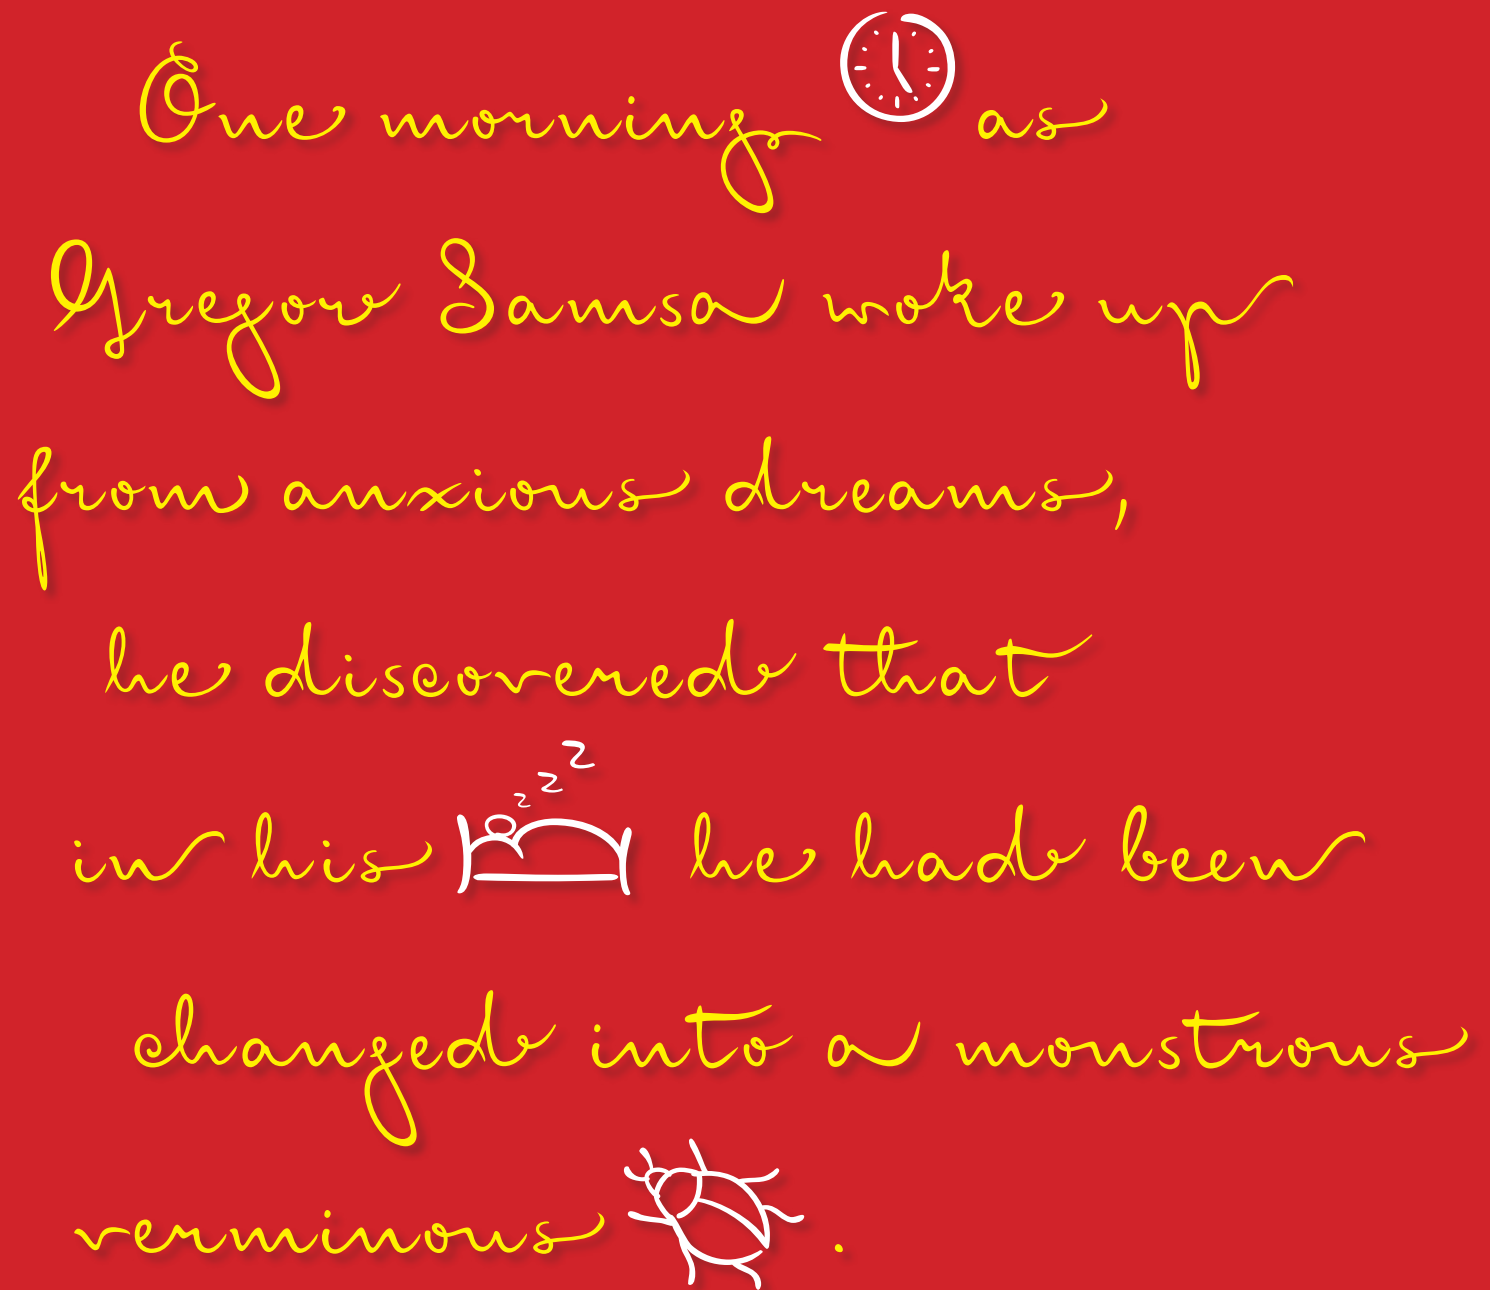 One morning as
Gregor Samsa woke up
from anxious dreams,
he discovered that
z z z
in his he had been
changed into a monstrous
verminous .